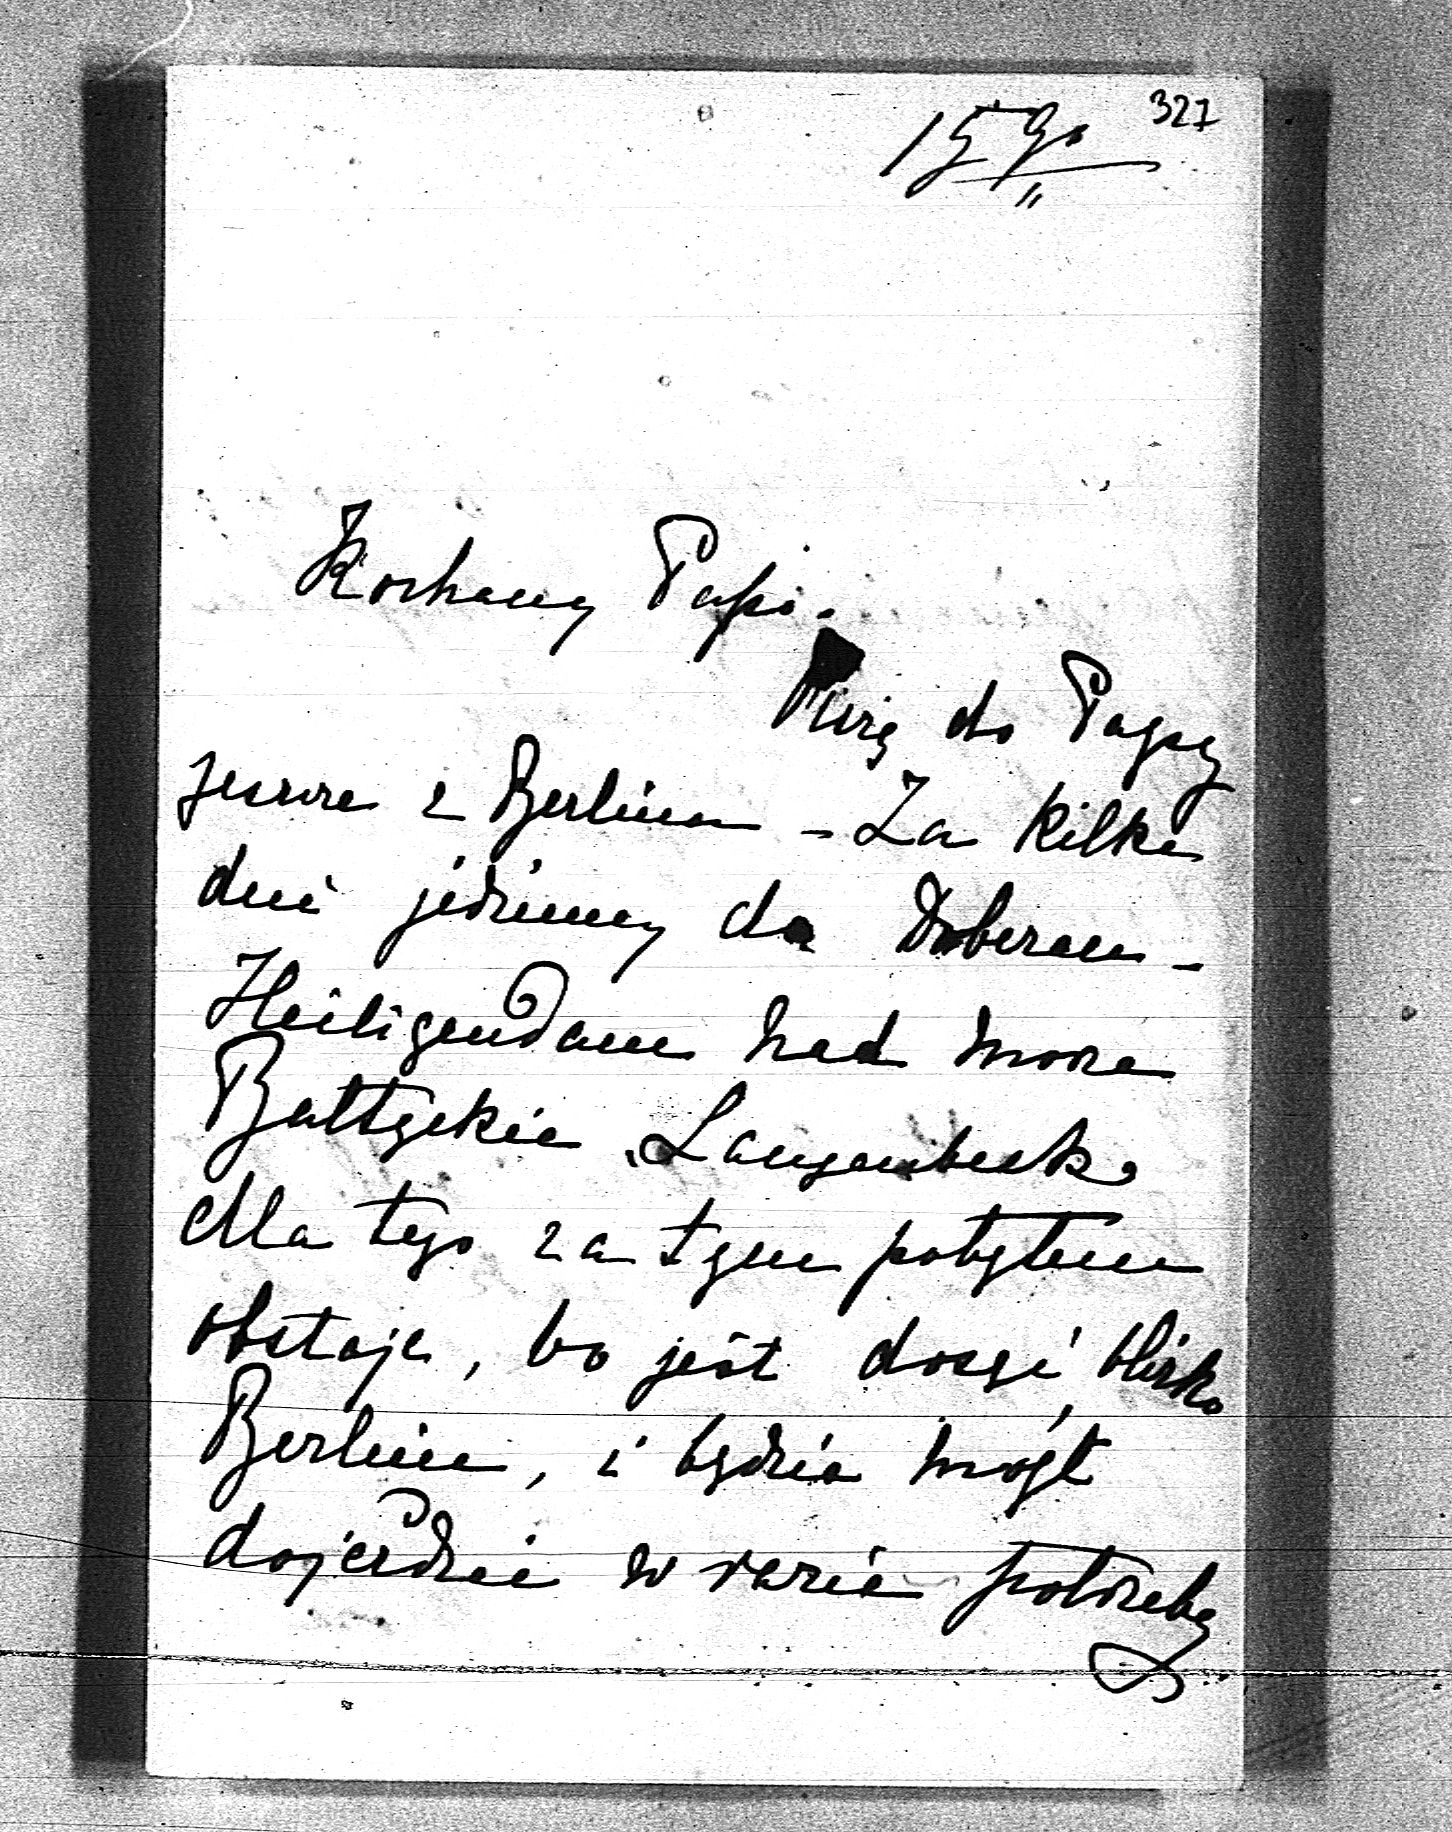 327
15 go
Kochany Papo.
Piszę do Papy
jeszcze z Berlina – Za kilka
dni jedziemy do Doberan –
Heiligendam nad morze
Bałtyckie. Langenbeck
dla tego za tym pobytem
obstaje, bo jest dosyć blisko
Berlina, i będzie mógł
dojeździć w razie potrzeby